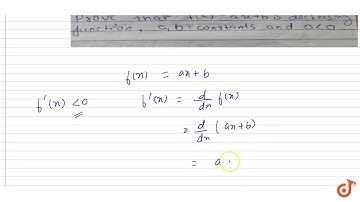 Prove that f(x) = ax+b is decreasing
function. a,b = constants and a<0
f(x) = ax + b
f'(x) < 0 f'(x) = d/dx f(x)
= d/dx (ax+b)
= a
doubtnut